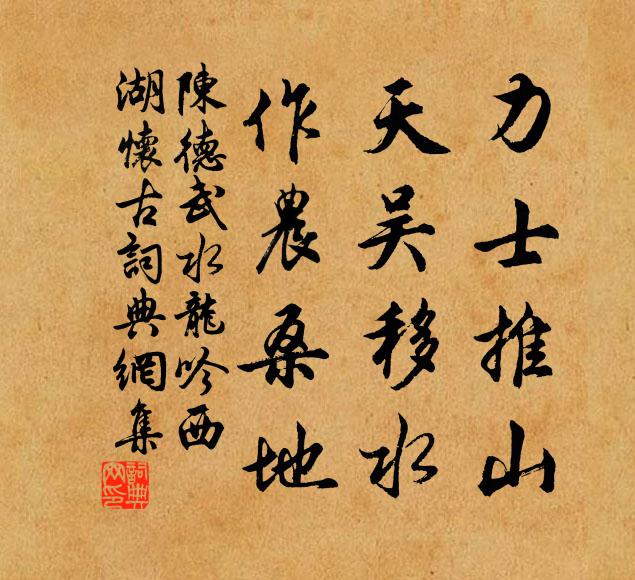 力士推山
天吴移水
作農桑地
陳德武水龍吟西
湖懷古詞典網集
詞典
网印